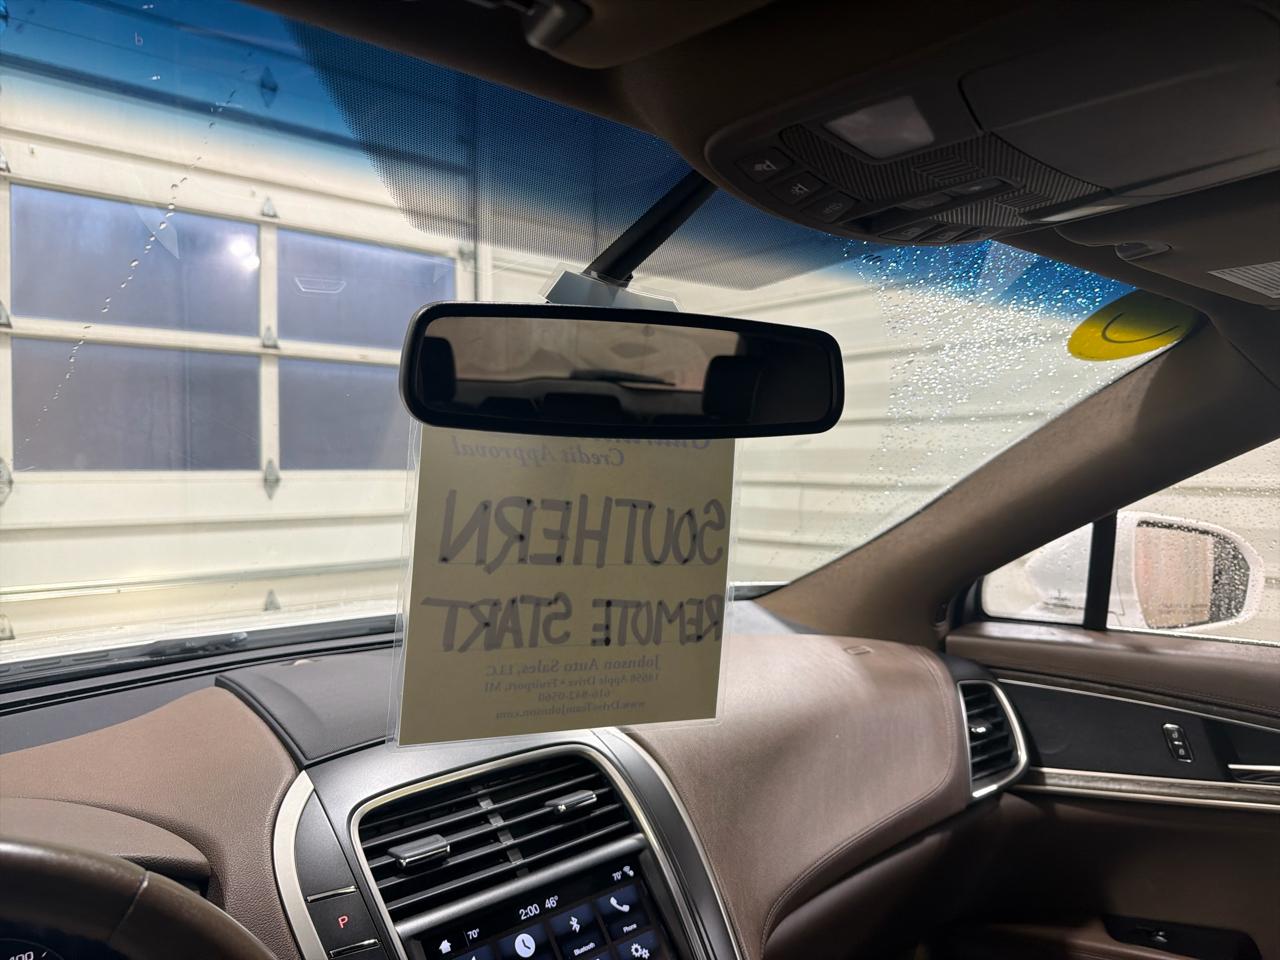 Credit Approval
SOUTHERN
REMOTE START
Johnson Auto Sales, LLC
14658 Apple Drive • Fruitport, MI
616-842-0560
www.DriveTeamJohnson.com
P
70°
2:00 46°
70°
Bluetooth
Phone